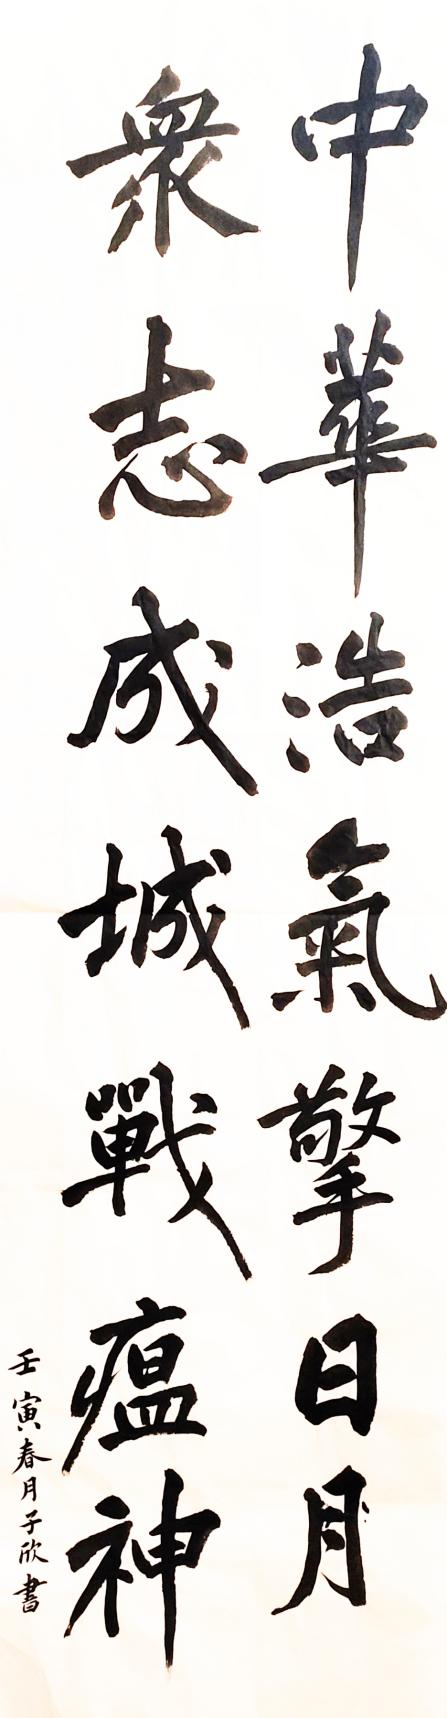 中華浩氣擎日月
衆志成城戰瘟神
壬寅春月子欣書